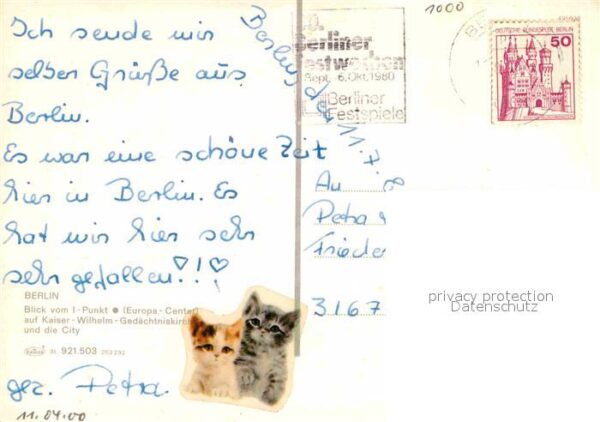 Ich sende mir
selber Grüße aus
Berlin.
Es war eine schöne Zeit
hier in Berlin. Es
hat mir hier sehr
sehr gefallen!!
BERLIN
Blick vom I-Punkt ● (Europa-Center)
auf Kaiser-Wilhelm-Gedächtniskirche
und die City
31 921.503
gez. Petra
11.04.00
Berlin, den 11.7.8
1000
Berliner
Festwochen
Sept. 6.Okt.1980
Berliner
Festspiele
DEUTSCHE BUNDESPOST BERLIN
50
An
Petra
Friede
3167
privacy protection
Datenschutz